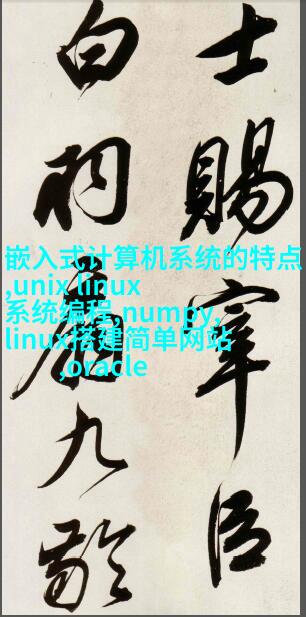 士賜宰臣
白羽扇九齡
嵌入式计算机系统的特点
,unix linux
系统编程,numpy,
linux搭建简单网站
,oracle